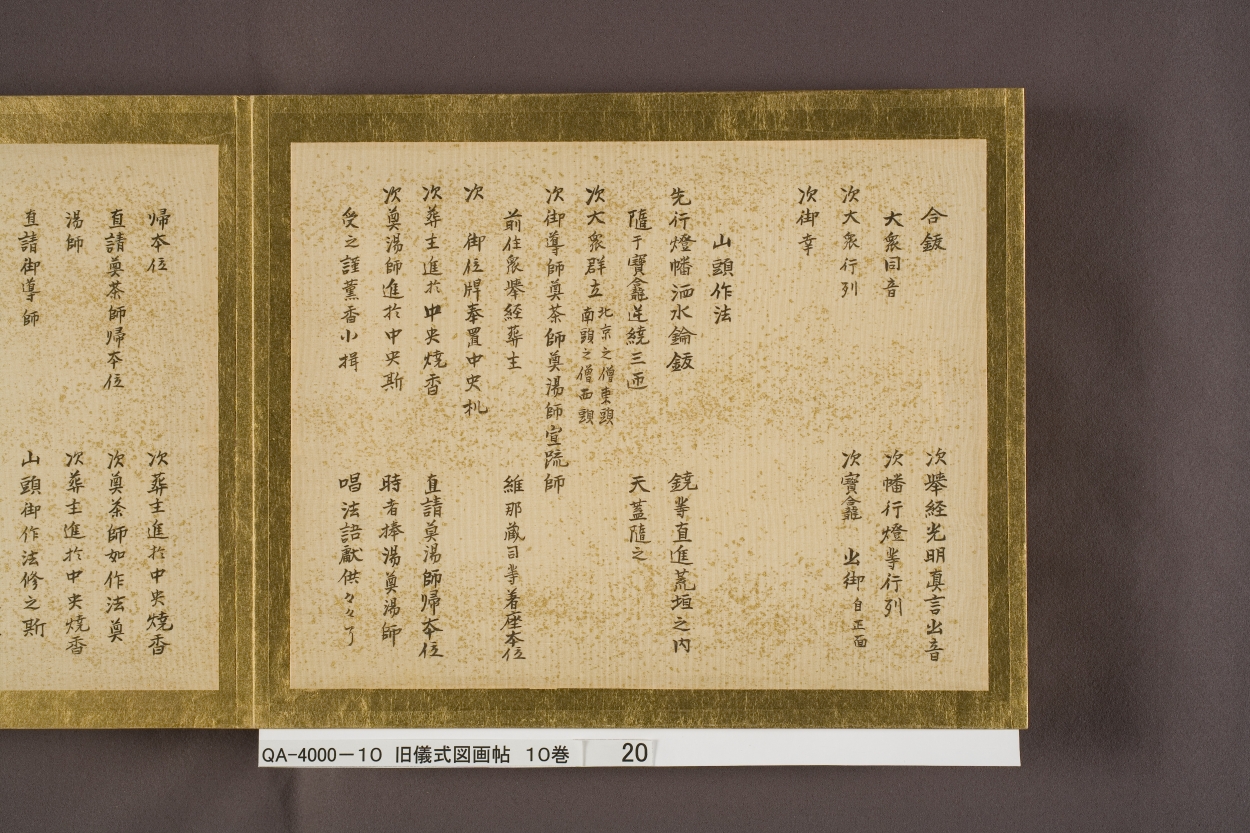 合鈸　次挙経光明真言出音
大衆同音　次幡行燈等行列
次大衆行列　次寶龕　出御自正面
次御幸
山頭作法
先行燈幡洒水鑰鈸　鐃等直進荒垣之内
随于寶龕逆繞三匝　天蓋随之
次大衆群立北京之僧東頭南頭之僧西頭
次御導師奠茶師奠湯師宣疏師
前住衆挙経葬主　維那蔵司等着座本位
次　御位牌奉置中央札
次葬主進於中央焼香　直請奠湯師帰本位
次奠湯師進於中央斯　時者捧湯奠湯師
受之謹薫香小揖　唱法語献供々々了
帰本位　次葬主進於中央焼香
直請奠茶師帰本位　次奠茶師如作法奠
湯師　次葬主進於中央焼香
直請御導師　山頭御作法修之斯
QA-4000-10 旧儀式図画帖 10巻 20